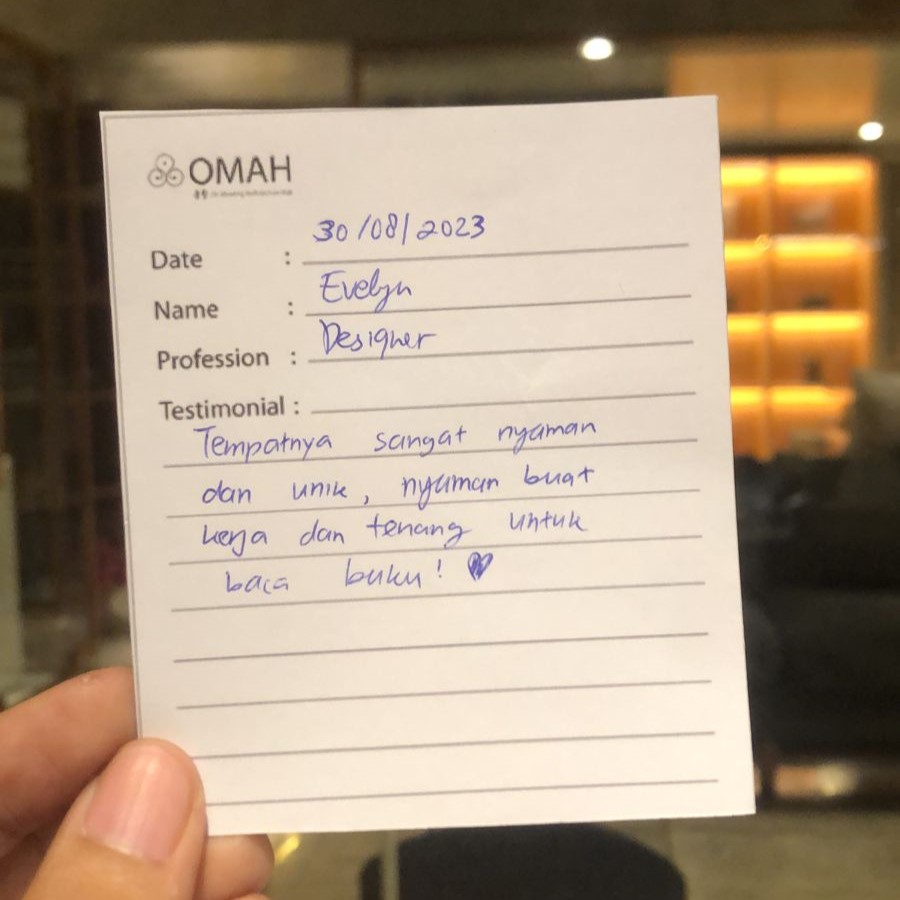 OMAH
Date : 30/08/2023
Name : Evelyn
Profession : Designer
Testimonial :
Tempatnya sangat nyaman
dan unik, nyaman buat
kerja dan tenang untuk
baca buku! ♥